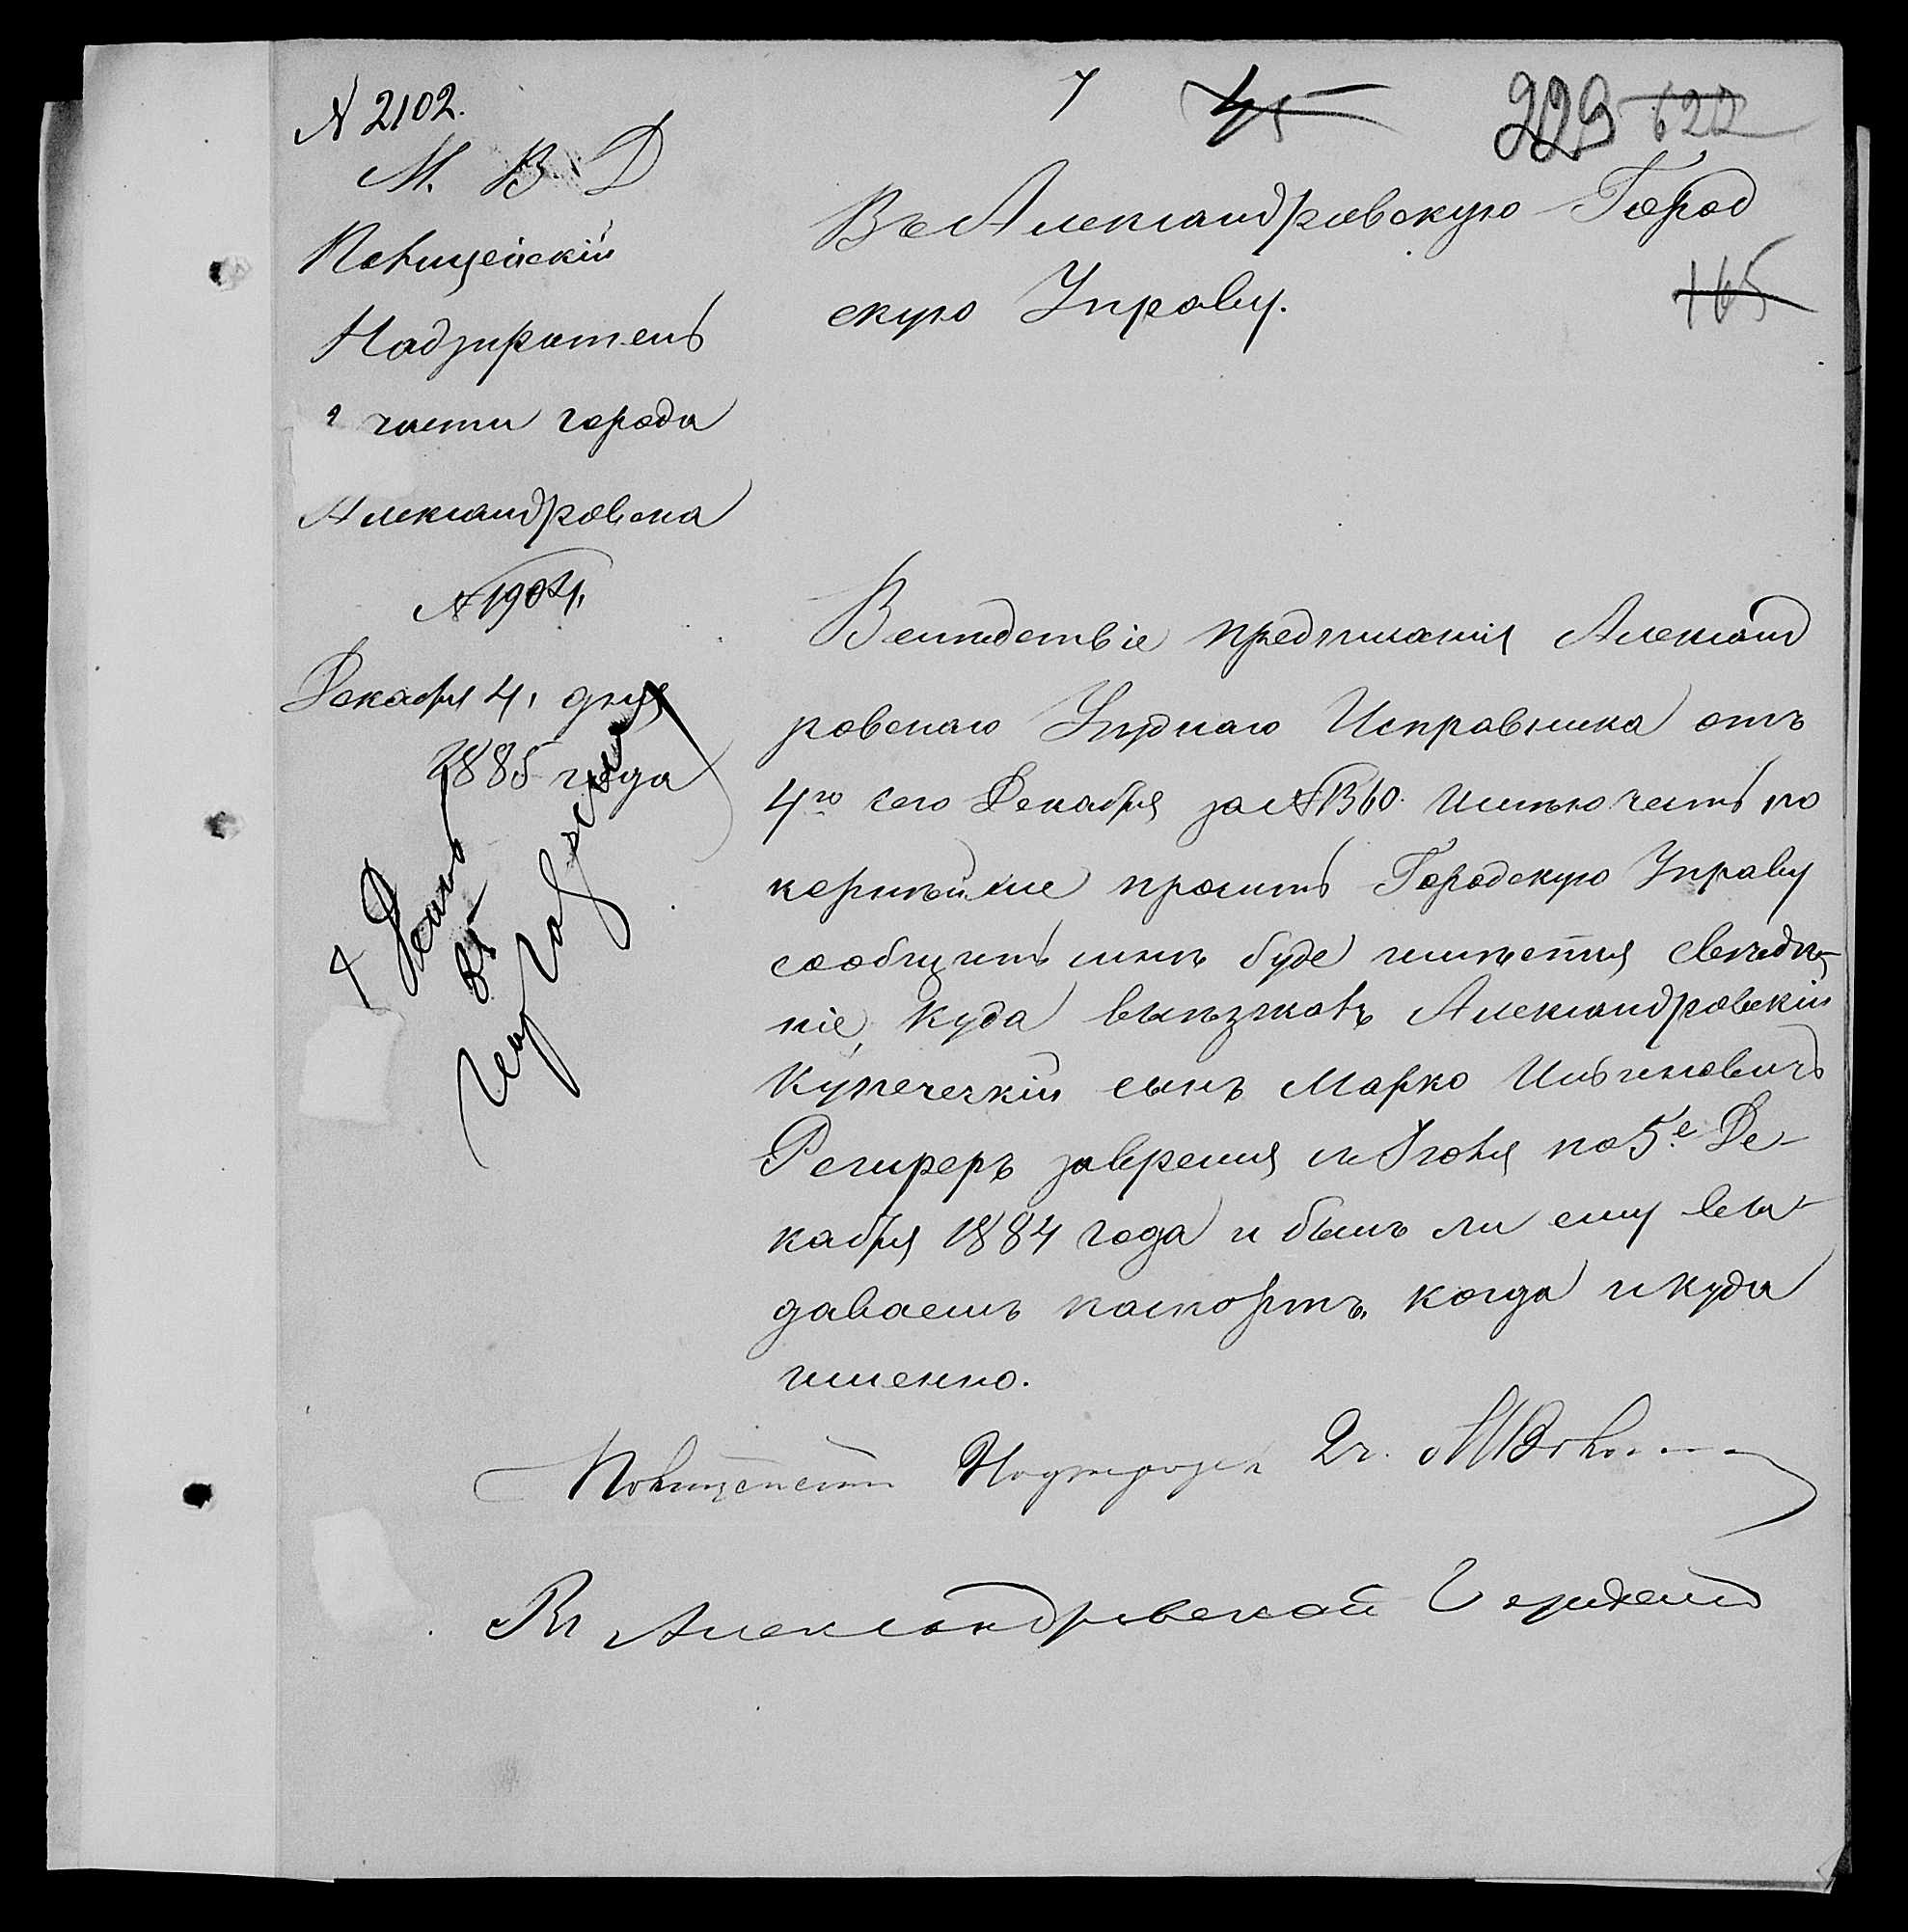 № 2102.
7 45 229 622
М. В. Д
Полицейскій
Надзиратель
2 части города
Александровска
№ 1904.
Декабря 4, дня
1885 года
Въ Александровскую Город
скую Управу.
165
Вслѣдствіе предписанія Александ
ровскаго Уѣзднаго Исправника отъ
4го сего Декабря за № 1360. Имѣю честь по
корнѣйше просить Городскую Управу
сообщить мнѣ буде имѣется свѣдѣ
ніе, куда выѣзжалъ Александровскій
Купеческій сынъ Марко
за время съ Іюля по 5е Де-
кабря 1884 года и былъ ли ему вы-
даваемъ паспортъ, когда и куда
именно.
Полицейскій Надзиратель 2 ч.
4 Декаб
85